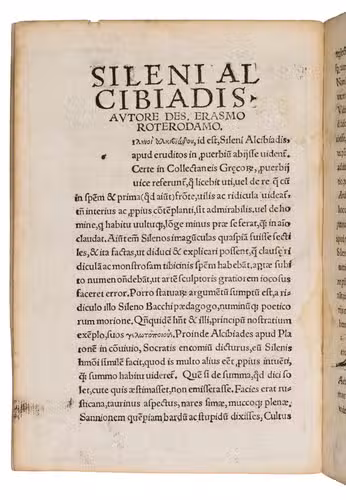 SILENI AL
CIBIADIS.
AVTORE DES. ERASMO
ROTERODAMO.
id est, Sileni Alcibiadis
apud eruditos in ꝓuerbiũ abijsse uidenť.
Certe in Collectaneis Gręcorꝝ, ꝓuerbij
uice referunť, q̃ licebit uti, uel de re q̃ cũ
in spẽm & prima (qđ aiũt) frõte, uilis ac ridicula uideať,
tñ interius ac ꝓpius cõtẽplanti, sit admirabilis, uel de ho
mine, q̃ habitu uultuꝙ, lõge minus prae se ferat, q̃ in aío
claudat. Aiũt em̃ Silenos imagũculas quaspiã fuisse secti
les, & ita factas, ut diduci & explicari possent, q̃ clausę ri
diculã ac monstrosam tibicinis spẽm habebãt, aptae subi
to numen ondẽbãt, ut artẽ sculptoris gratiorem iocosus
faceret error. Porro statuaꝝ argumẽtũ sumptũ est, a ri
diculo illo Sileno Bacchi pædagogo, numinũꝙ poetico
rum morione. Qñquidẽ hñt & illi, principũ nostratium
exẽplo, suos γελωτοποιούς. Proinde Alcibiades apud Pla
tonẽ in cõuiuio, Socratis encomiũ dicturus, eũ Silenis
hmõi similẽ facit, quod is multo alius eẽt, ꝓpius intuẽti,
q̃ summo habitu uidereť. Quẽ si de summa, qđ dici so
let, cute quis æstimasset, non emisset asse. Facies erat ru
sticana, taurinus aspectus, nares simæ, muccoꝙ plenæ.
Sannionem quẽpiam bardũ ac stupidũ dixisses, Cultus